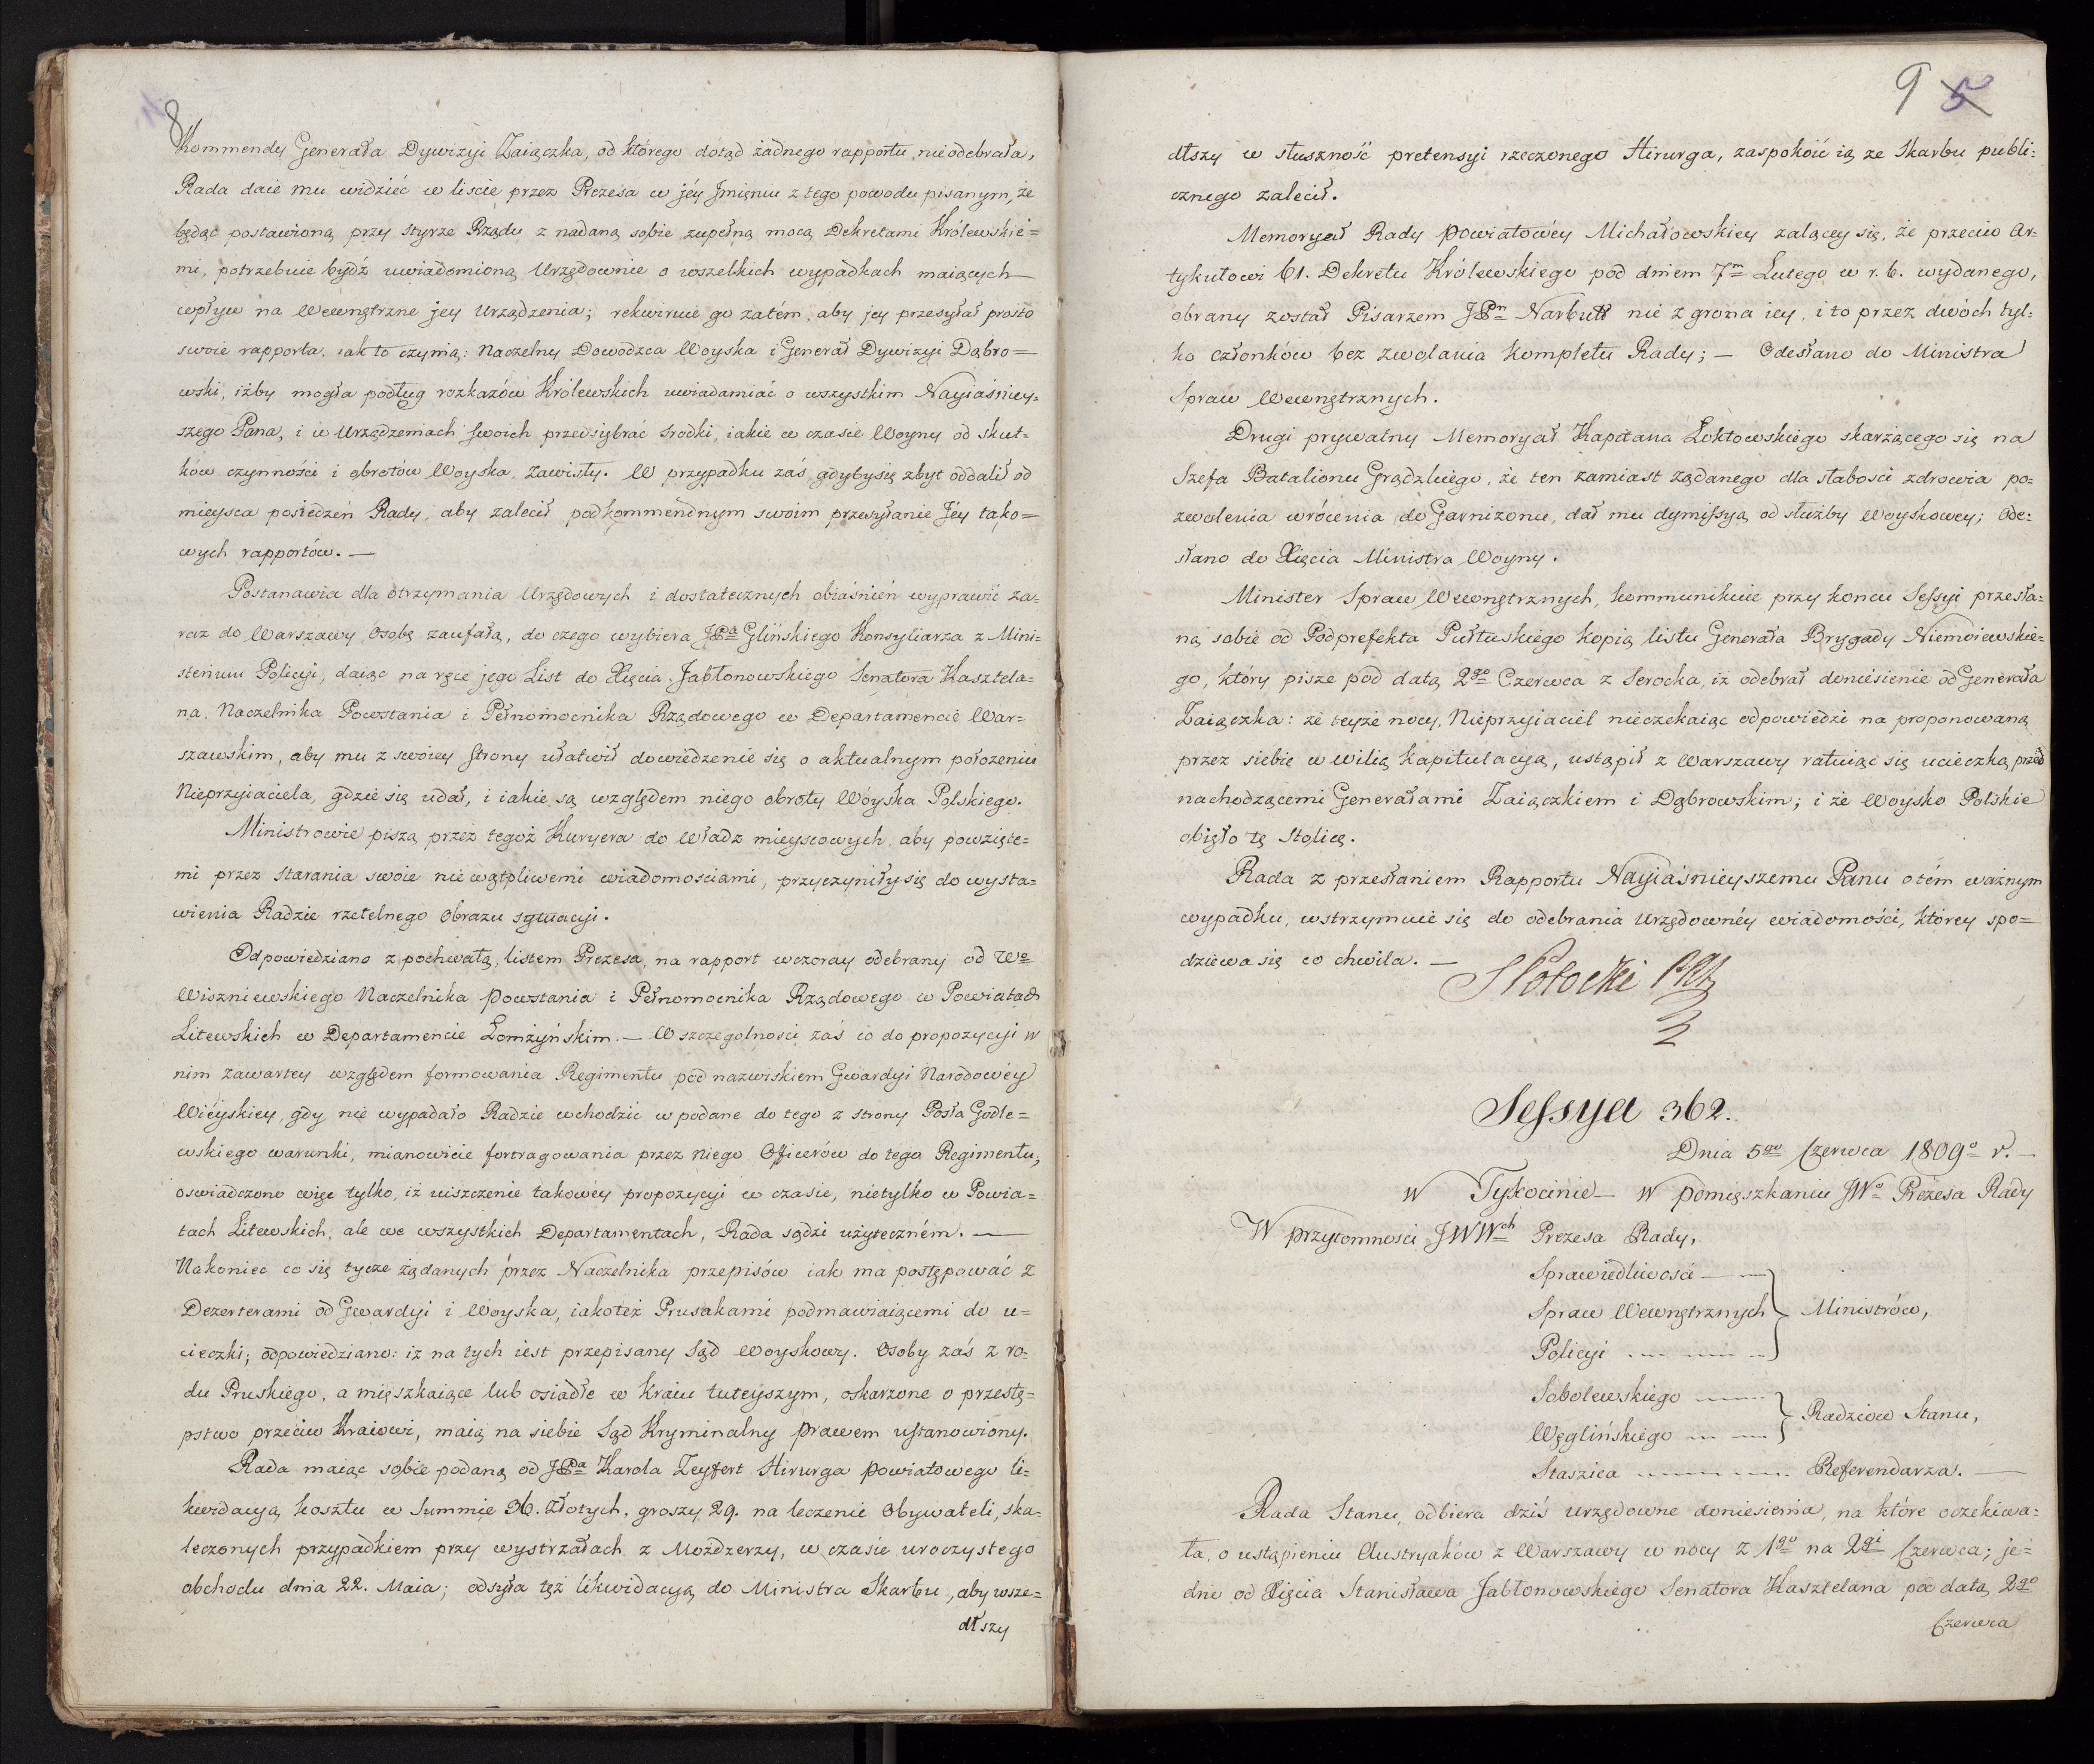 8
Kommendy Generała Dywizyi Zaiączka, od którego dotąd żadnego rapportu nieodebrała,
Rada daie mu widzieć w liscie przez Prezesa w jéy Jmięniu z tego powodu pisanym, że
będąc postawioną przy styrze Rządu z nadaną sobie zupełną mocą Dekretami Królewskie=
mi, potrzebuie bydź uwiadomioną Urzędownie o wszelkich wypadkach maiących
wpływ na Wewnętrzne jey Urządzenia; rekwiruie go zatém, aby jey przesyłał prosto
swoie rapporta, iak to czynią: Naczelny Dowodzca Woyska i Generał Dywizyi Dąbro=
wski, iżby mogła podług rozkazów Królewskich uwiadamiać o wszystkim Nayiaśniey=
szego Pana, i w Urządzeniach swoich przedsiębrać srodki, iakie w czasie Woyny od skut=
ków czynności i obrotów Woyska, zawisły. W przypadku zaś, gdybysię zbyt oddalił od
mieysca posiedzeń Rady, aby zalecił podkommendnym swoim przesyłanie Jéy tako=
wych rapportów. —
Postanawia dla otrzymania Urzędowych i dostatecznych obiaśnień wyprawić za=
raz do Warszawy Osobę zaufałą, do czego wybiera JPa Glińskiego Konsyliarza z Mini=
sterium Policyi, daiąc na ręce jego List do Xięcia Jabłonowskiego Senatora Kasztela=
na, Naczelnika Powstania i Pełnomocnika Rządowego w Departamencie War=
szawskim, aby mu z swoiey strony ułatwił dowiedzenie się o aktualnym położeniu
Nieprzyiaciela, gdzie się udał, i iakie są względem niego obroty Wóyska Polskiego.
Ministrowie piszą przez tegoż Kuryera do Władz mieyscowych, aby powzięte=
mi przez starania swoie niewątpliwemi wiadomościami, przyczyniły się do wysta=
wienia Radzie rzetelnego Obrazu sytuacyi.
Odpowiedziano z pochwałą, listem Prezesa, na rapport wczoray odebrany od Wo
Wiszniewskiego Naczelnika Powstania i Pełnomocnika Rządowego w Powiatach
Litewskich w Departamencie Łomżyńskim. — W szczegolnosci zaś co do propozycyi w
nim zawartey względem formowania Regimentu pod nazwiskiem Gwardyi Narodowéy
Wiéyskiey, gdy nie wypadało Radzie wchodzić w podane do tego z strony Posła Godle=
wskiego warunki, mianowicie fortragowania przez niego Officerów do tego Regimentu;
oswiadczono więc tylko, iż uiszczenie takowéy propozycyi w czasie, nietylko w Powia=
tach Litewskich, ale we wszystkich Departamentach, Rada sądzi użyteczném. —
Nakoniec co się tycze żądanych przez Naczelnika przepisów iak ma postępować z
Dezerterami od Gwardyi i Woyska, iakoteż Prusakami podmawiaiącemi do u=
cieczki; odpowiedziano: iż na tych iest przepisany Sąd Woyskowy. Osoby zaś z ro=
du Pruskiego, a mięszkaiące lub osiadłe w Kraiu tuteyszym, oskarzone o przestę=
pstwo przeciw Kraiowi, maią na siebie Sąd Kryminalny prawem ustanowiony.
Rada maiąc sobie podaną od JPa Karola Zeyfert Hirurga powiatowego li=
kwidacyą kosztu w Summie 36. złotych, groszy 29. na leczenie Obywateli, ska=
leczonych przypadkiem przy wystrzałach z Mozdzerzy, w czasie uroczystego
obchodu dnia 22. Maia; odsyła tęż likwidacyą do Ministra Skarbu, aby wsze=
dłszy
9 5
dłszy w słuszność pretensyi rzeczonego Hirurga, zaspokoić ią ze Skarbu publi=
cznego zalecił.
Memoryał Rady powiatowéy Michałowskiey żalącey się, że przeciw Ar=
tykułowi 61. Dekretu Królewskiego pod dniem 7m Lutego w r. b. wydanego,
obrany został Pisarzem JPn Narbutt nie z grona iey, i to przez dwóch tyl=
ko członków bez zwołania kompletu Rady; — Odesłano do Ministra
Spraw Wewnętrznych.
Drugi prywatny Memoryał Kapitana Łoktowskiego skarżącego się na
Szefa Batalionu Grądzkiego, że ten zamiast żądanego dla słabosci zdrowia po=
zwolenia wrócenia do Garnizonu, dał mu dymissyą od służby Woyskowey; Ode=
słano do Xięcia Ministra Woyny.
Minister Spraw Wewnętrznych, kommunikuie przy koncu Sessyi przesła=
ną sobie od Podprefekta Pułtuskiego kopią listu Generała Brygady Niemoiewskie=
go, który pisze pod datą 2go Czerwca z Serocka, iż odebrał doniesienie od Generała
Zaiączka: że teyże nocy, Nieprzyiaciel nieczekaiąc odpowiedzi na proponowaną
przez siebie w wilią kapitulacyą, ustąpił z Warszawy ratuiąc się ucieczką przed
nachodzącemi Generałami Zaiączkiem i Dąbrowskim; i że Woysko Polskie
obięło tę Stolicę.
Rada z przesłaniem Rapportu Nayiaśnieyszemu Panu o tém ważnym
wypadku, wstrzymuie się do odebrania Urzędownéy wiadomości, którey spo=
dziewa się co chwila. —
SPotocki
Sessya 362.
Dnia 5go Czerwca 1809o r. —
w Tykocinie — w pomięszkaniu JWo Prezesa Rady
W przytomnosci JWWch Prezesa Rady,
Sprawiedliwosci
Spraw Wewnętrznych Ministrów,
Policyi
Sobolewskiego
Radzców Stanu,
Węglińskiego
Staszica Referendarza. —
Rada Stanu, odbiera dziś urzędowne doniesienia, na które oczekiwa=
ła, o ustąpieniu Austryaków z Warszawy w nocy z 1go na 2gi Czerwca; je=
dno od Xięcia Stanisława Jabłonowskiego Senatora Kasztelana pod datą 2go
Czerwca